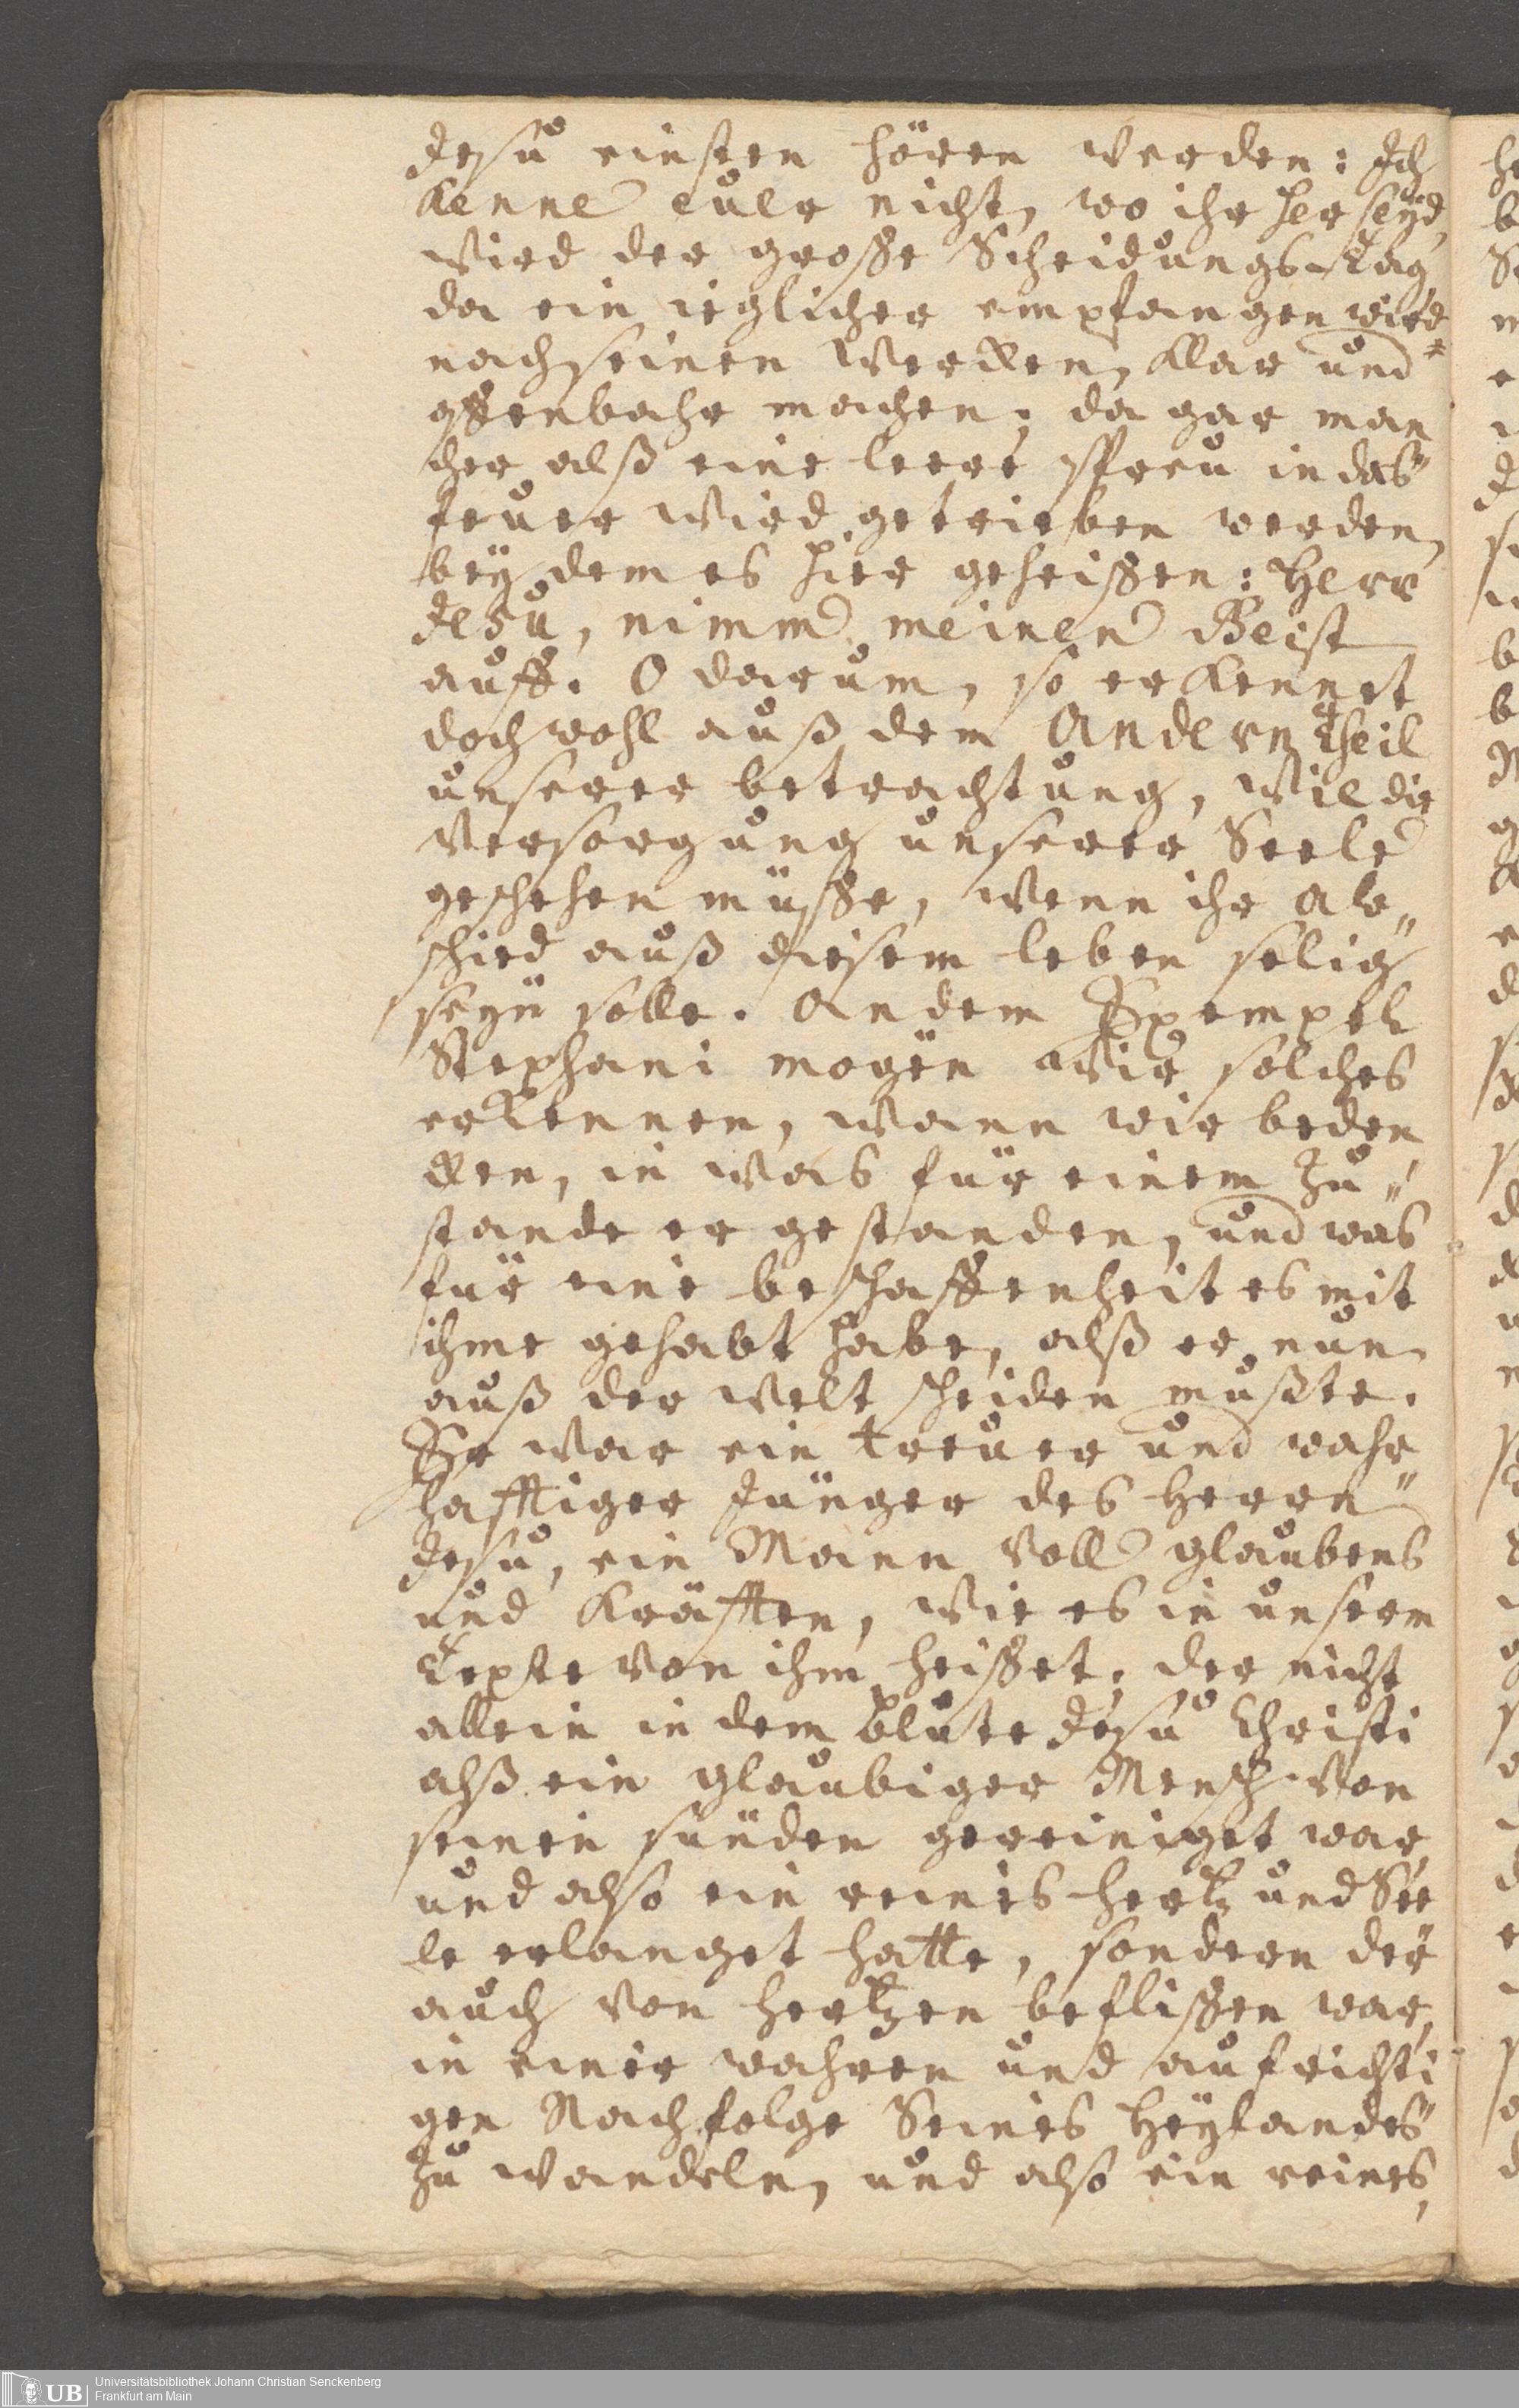 Jesu einsten hören werden: Ich
Kenne euer nicht, wo ihr her seyd,
wird der große Scheidungs-Tag,
da ein ieglicher empfangen wird
nach seinen Wercken, klar und
offenbahr machen; da gar man
cher alß eine leere spreu in das
feuer wird getrieben werden,
bey dem es hier geheißen: Herr
Jesu, nimm meinen Geist
auff. O darum, so erkennet
doch wohl auß dem Andern Theil
unserer betrachtung, wie die
Versorgung unserer Seele
geschehen müße, wenn ihr ab„
schied auß diesem leben selig
seyn solle. An dem Exempel
Stephani mogen wir solches
erkennen, wann wir beden
cken, in was für einem Zu„
stande er gestanden, und was
für eine beschaffenheit es mit
ihme gehabt habe, alß er nun
auß der Welt scheiden mußte.
Er war ein treuer und wahr
hafftiger Jünger des Herrn
Jesu, ein Mann voll glaubens
und Kräfften, wie es in unserm
Texte von ihm heißet; der nicht
allein in dem blute Jesu Christi
alß ein glaubiger Mensch von
seinen sünden gereiniget war,
und also ein reines hertz und See
le erlanget hatte, sondern der
auch von hertzen beflißen war,
in einer wahren und aufrichti
gen Nachfolge Seines Heylandes
zu wandeln, und also ein reines,
UB Universitätsbibliothek Johann Christian Senckenberg
Frankfurt am Main